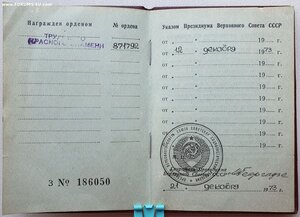 Награжден орденом
№ ордена
ТРУДОВОГО
КРАСНОГО ЗНАМЕНИ
871792
З № 186050
Указом Президиума Верховного Совета СССР
от 12 декабря 1973 г.
от 19 г.
от 19 г.
от 19 г.
от 19 г.
от 19 г.
от 19 г.
21 декабря 1973 г.